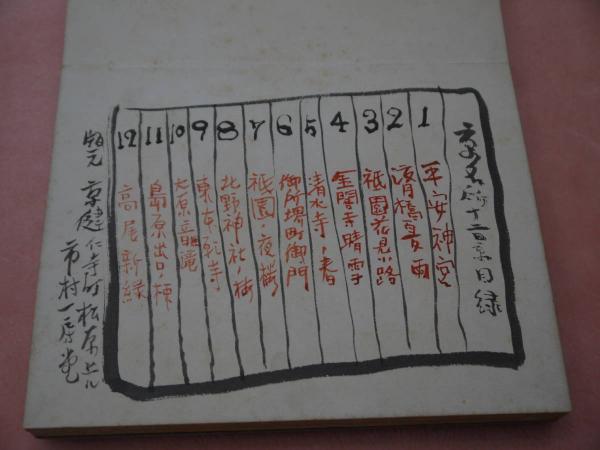 京名所十二景目録
1 平安神宮
2 渡月橋夏雨
3 祇園花見小路
4 金閣寺晴雪
5 清水寺ノ春
6 御所堺町御門
7 祇園ノ夜桜
8 北野神社ノ梅
9 東本願寺
10 大原音無滝
11 島原出口ノ柳
12 高尾新緑
版元 京建仁寺町松原上ル
市村一房堂